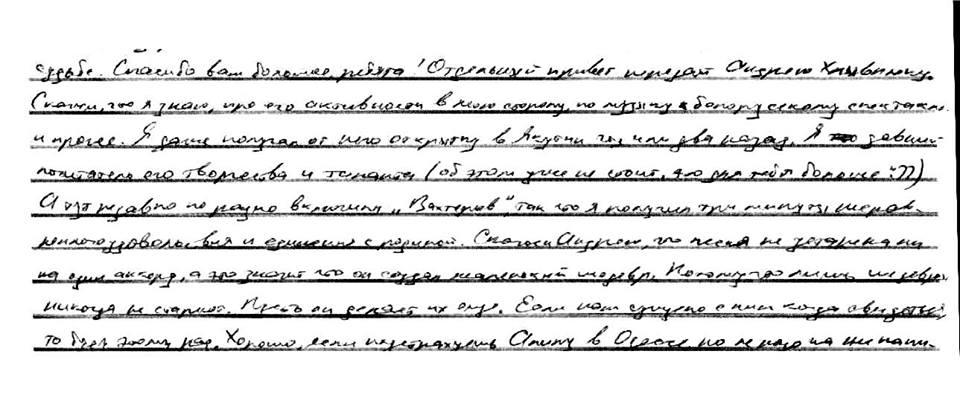 судьбе. Спасибо вам большое, ребята! Отдельный привет передай Андрею Хлывнюку.
Скажи, что я знаю, про его активности в мою сторону, по музыку к белорусскому спектаклю
и прочее. Я даже получал от него открытку в Якутии год или два назад. Я давний
почитатель его творчества и таланта (об этом уже не стоит, это для тебя больше :))
А тут недавно по радио включили „Вахтерам", так что я получил три минуты
удовольствия и единения с родиной. Скажи Андрею, что песня не устарела ни
на один аккорд, а это значит что он создал маленький шедевр. Потому что лишь шедевры
никогда не стареют. Пусть он делает их еще. Если нам суждено с ним когда свидеться,
то буду этому рад. Хорошо, если Алину в но не надо на